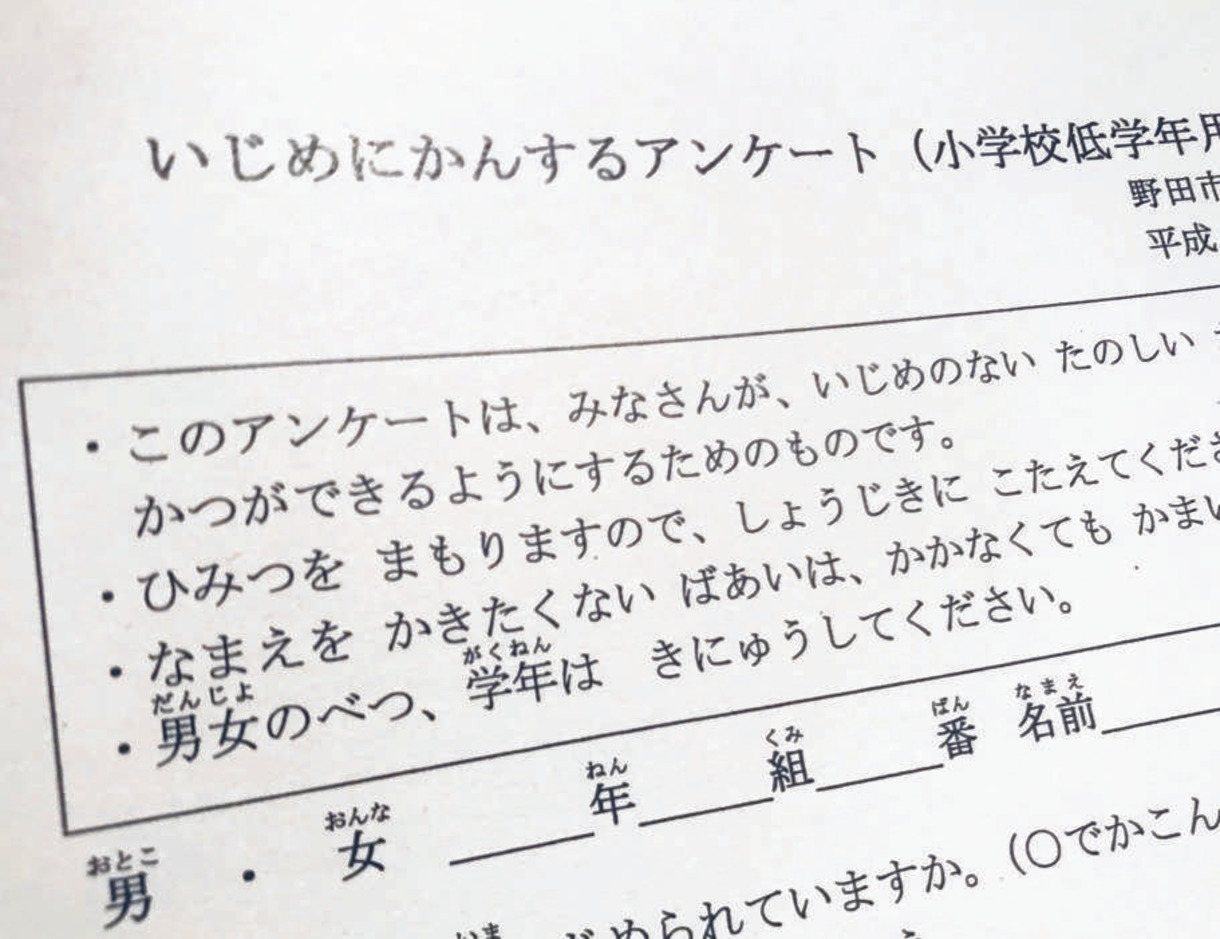 いじめにかんするアンケート（小学校低学年用
野田市
平成
・このアンケートは、みなさんが、いじめのない たのしい
かつができるようにするためのものです。
・ひみつを まもりますので、しょうじきに こたえてくださ
・なまえを かきたくない ばあいは、かかなくても かまい
だんじよ がくねん
・男女のべつ、学年は きにゅうしてください。
おとこ おんな ねん くみ ばん なまえ
男 ・ 女 ＿＿＿年＿＿＿組＿＿＿番 名前＿＿＿
じめられていますか。（○でかこん